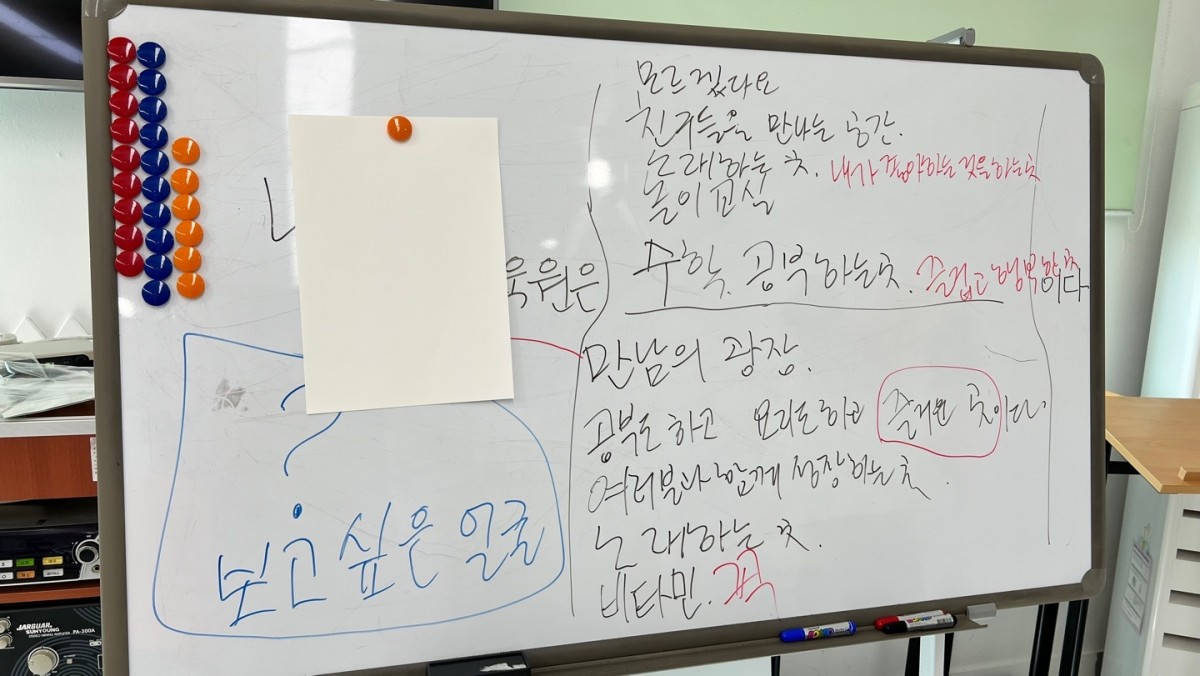 원은
?
보고싶은 얼굴
모르겠다요
친구들을 만나는 공간.
노래하는 곳. 내가 좋아하는것을하는곳
놀이교실
수학, 공부하는곳. 즐겁고 행복한곳이다
만남의 광장.
공부도하고 요리도하고 즐거운 곳이다.
여러분과함께 성장하는 곳.
노래하는 곳.
비타민.
JARGUAR
SUHYOUNG PA-200A